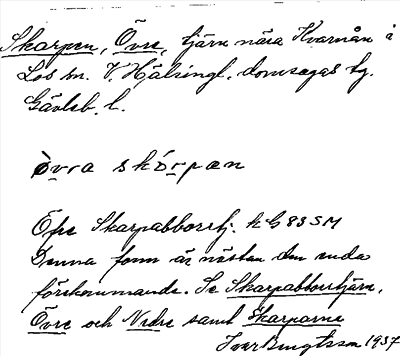 Skarpen, Övre, tjärn nära Kvarnån å
Los sn. V. Hälsingl. domsagas tg.
Gävleb. l.
òvra skórpan
Öfre Skarpabborrtj. k G 83 SM
Denna form är nästan den enda
förekommande. Se Skarpabborrtjärn,
Övre och Nedre samt Skarparne
Ivar Bengtsson 1937